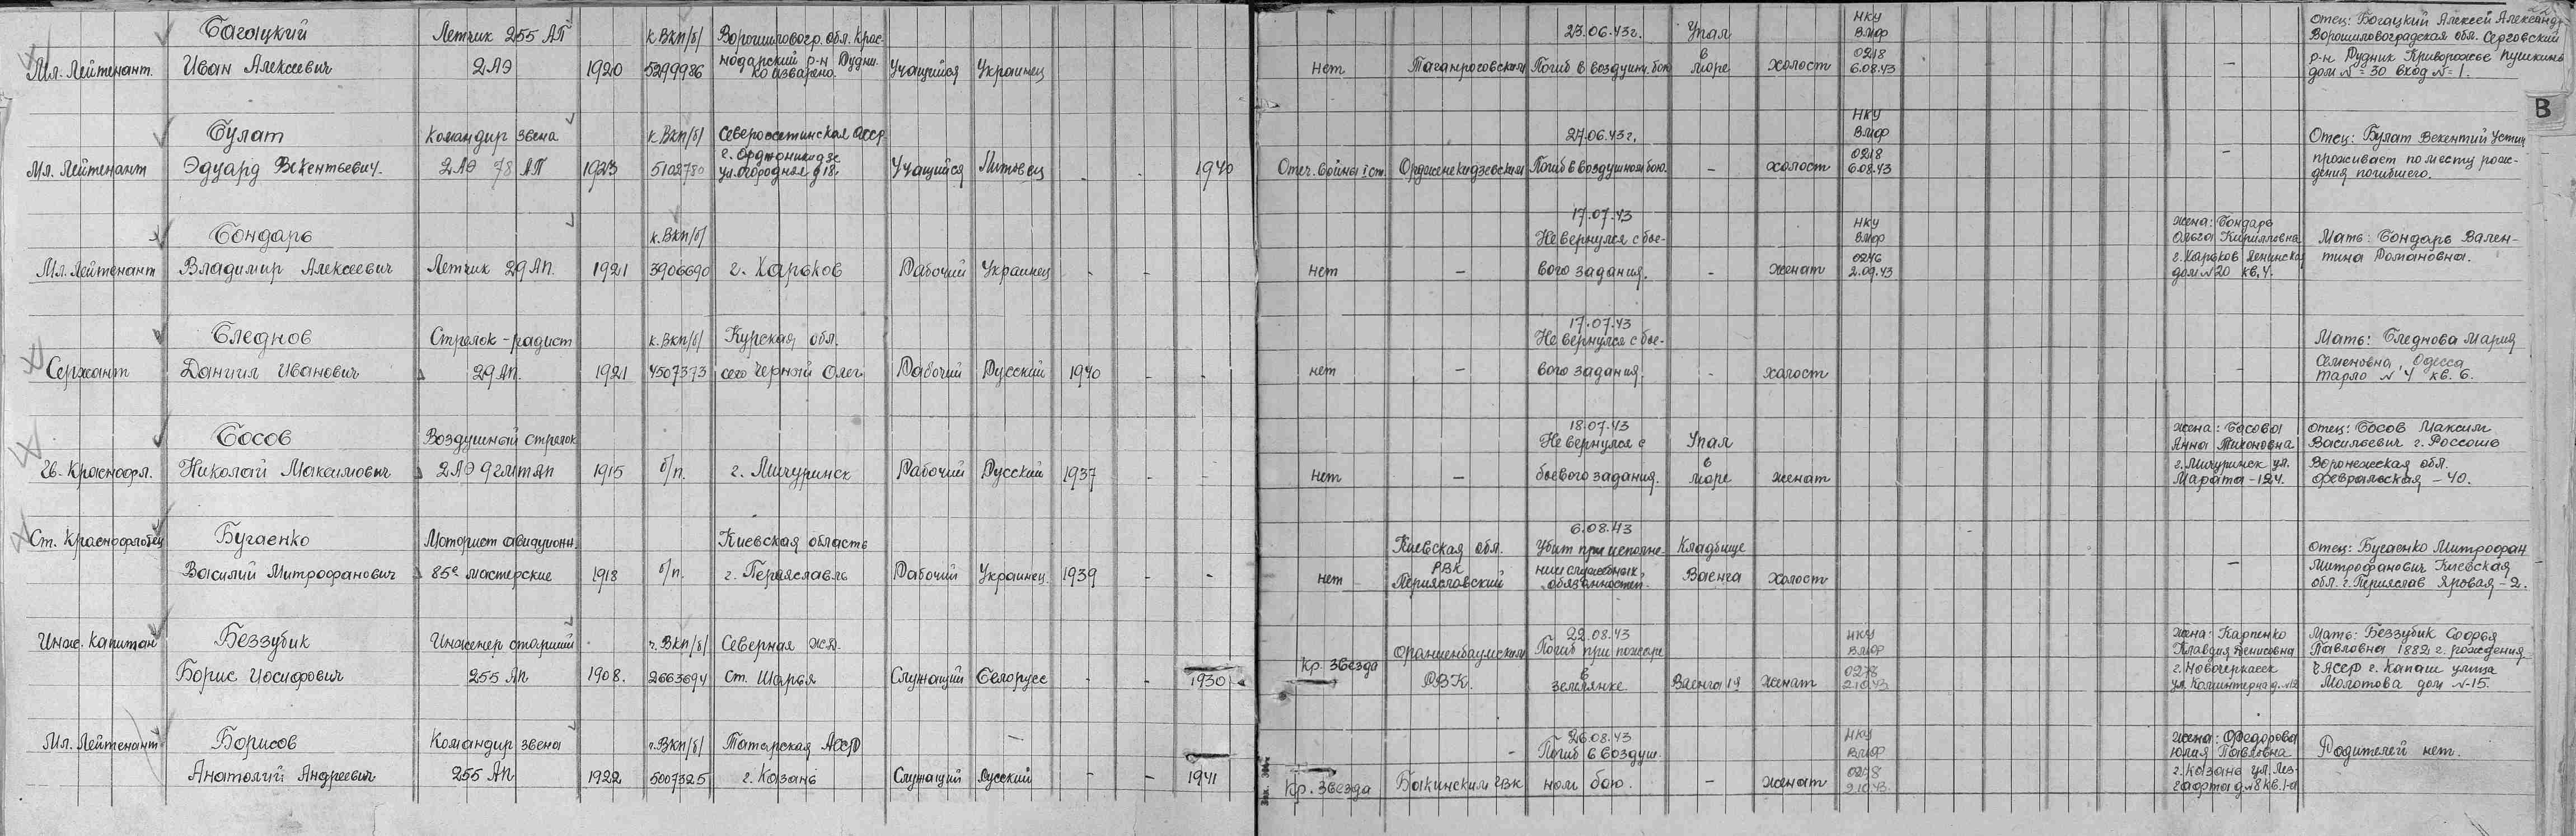 Багацкий Летчик 255 АП к ВКП/б/ Ворошиловогр. обл. Крас-
нодарский р-н Рудни-
Мл. Лейтенант. Иван Алексеевич 2АЭ 1920 5299986 Учащийся Украинец
23.06.43г. Упал НКУ ВМФ
нет Таганроговский Погиб в воздушн. бою в море холост 0218 6.08.43 —
Отец: Богацкий Алексей Александр
Ворошиловоградская обл. Серговский
р-н Рудник Криворожье Пушкино
дом №=30 вход №=1.
В
Булат Командир звена к ВКП/б/ Североосетинская АССР
г. Орджоникидзе
Мл. Лейтенант Эдуард Векентьевич. 2АЭ 78 АП 1923 5102780 ул. Огородная д 18. Учащийся Литовец - - 1940
27.06.43г. НКУ ВМФ
Отеч. войны I ст. Орджоникидзевский Погиб в воздушном бою. – холост 0218 6.08.43 –
Отец: Булат Векентий Устин
проживает по месту рож-
дения погибшего.
Бондарь к. ВКП/б/
Мл. Лейтенант Владимир Алексеевич Летчик 29 АП. 1921 3906690 г. Харьков Рабочий Украинец - -
17.07.43
Не вернулся с бое- НКУ ВМФ
нет – вого задания. - женат 0246 2.09.43
жена: Бондарь
Ольга Кирилловна
г. Харьков Ленинская
дом №20 кв. 4.
Мать: Бондарь Вален-
тина Романовна.
Бледнов Стрелок-радист к. ВКП/б/ Курская обл.
Сержант Даниил Иванович 29 АП. 1921 4507373 село Черной Олег. Рабочий Русский 1940 - -
17.07.43
Не вернулся с бое-
нет – вого задания. - холост –
Мать: Бледнова Мария
Семеновна, Одесса
Тарло № 4 кв. 6.
Босов Воздушный стрелок
Гв. Краснофл. Николай Максимович 2АЭ 9 гмтап 1915 б/п. г. Мичуринск Рабочий Русский 1937 - -
18.07.43
Не вернулся с Упал
нет – боевого задания. в море женат
жена: Босова
Анна Тихоновна
г. Мичуринск ул.
Марата-124.
отец: Босов Максим
Васильевич г. Россошь
Воронежская обл.
Февральская – 40.
Ст. Краснофлотец Бугаенко Моторист авиадуионн. Киевская область
Василий Митрофанович 85е мастерские 1918 б/п. г. Переяславль Рабочий Украинец. 1939 - -
6.08.43
Киевская обл. Убит при исполне- Кладбище
нет РВК Периясловский нии служебных обязанностей. Ваенга холост –
отец: Бугаенко Митрофан
Митрофанович Киевская
обл. г. Перияслав Яровая – 2.
Инж. Капитан Беззубик Инженер старший ч. ВКП/б/ Северная ЖД.
Борис Иосифович 255 АП 1908. 2663694 Ст. Шарья Служащий Белорусс - - 1930
22.08.43
Кр. Звезда Ораниенбаумский Погиб при пожаре НКУ ВМФ
РВК. в землянке Ваенга 1я женат 0278 2.10.43
жена: Карпенко
Клавдия Денисовна
г. Новочеркасск
ул. Коминтерна д. №12
Мать: Беззубик Софья
Павловна 1882 г. рождения
ЧАССР г. Канаш улица
Молотова дом №-15.
Мл. Лейтенант Борисов Командир звена ч. ВКП/б/ Татарская АССР –
Анатолий Андреевич 255 АП 1922 5007325 г. Казань Служащий Русский - - 1941
26.08.43
Погиб в воздуш- НКУ ВМФ
Кр. Звезда Бакинским ГВК ном бою. – женат 0278 2.10.43
жена: Федорова
Юлия Павловна
г. Казань ул. Лез-
гафта д. №8 кв. 1-а
Родителей нет.